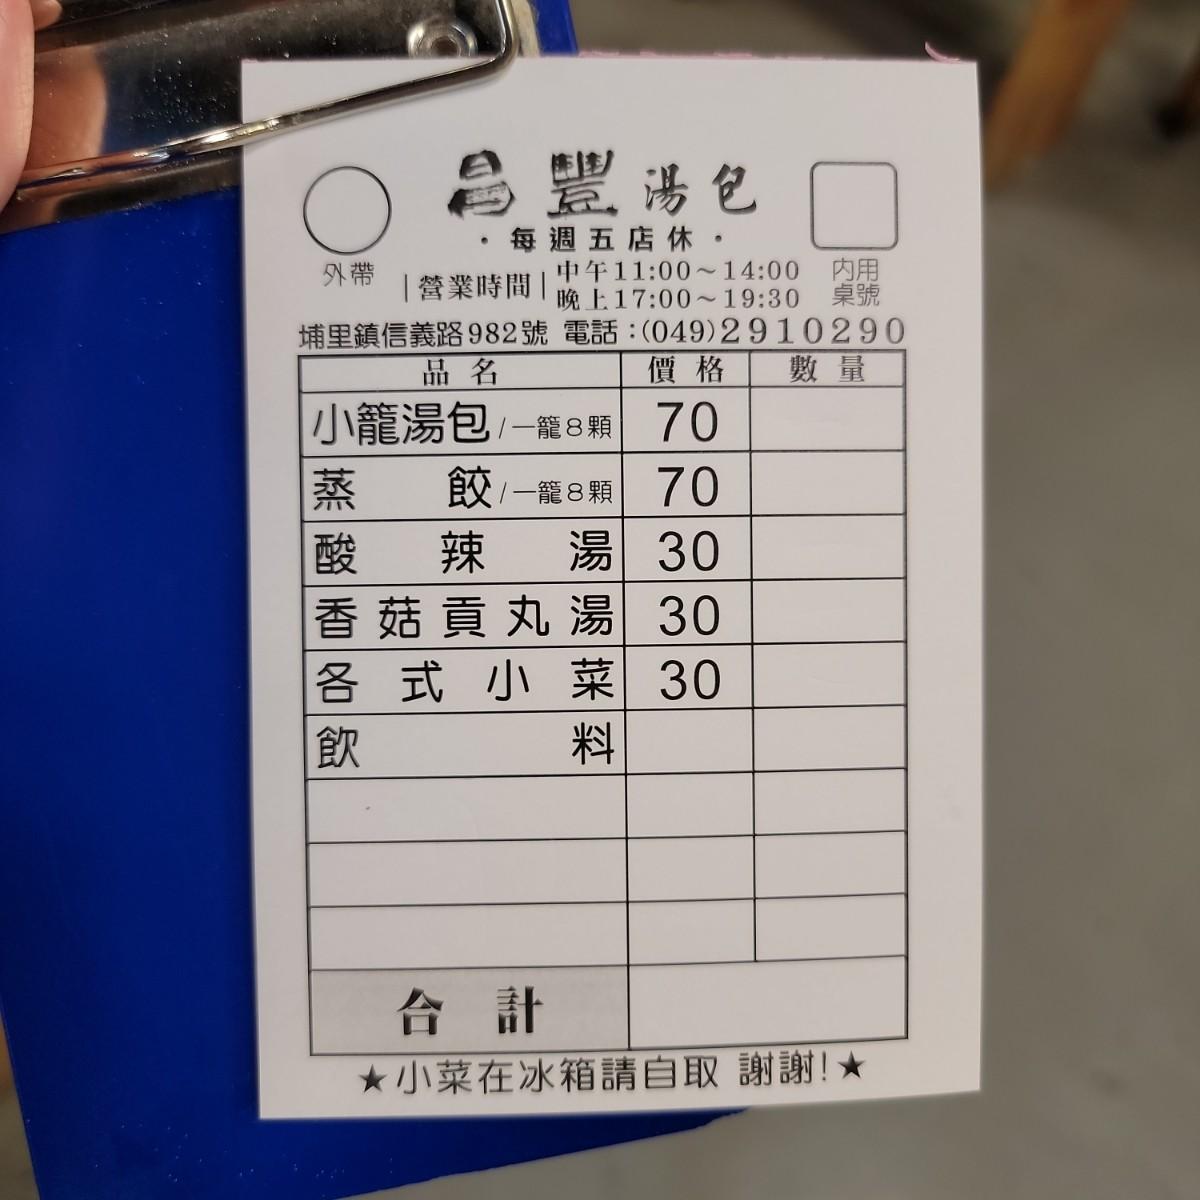 昌豐湯包
・每週五店休・
外帶
|營業時間|
中午11:00～14:00
晚上17:00～19:30
內用
桌號
埔里鎮信義路982號 電話：(049)2910290
品名 價格 數量
小籠湯包/一籠8顆 70
蒸餃/一籠8顆 70
酸辣湯 30
香菇貢丸湯 30
各式小菜 30
飲料
合計
★小菜在冰箱請自取 謝謝!★